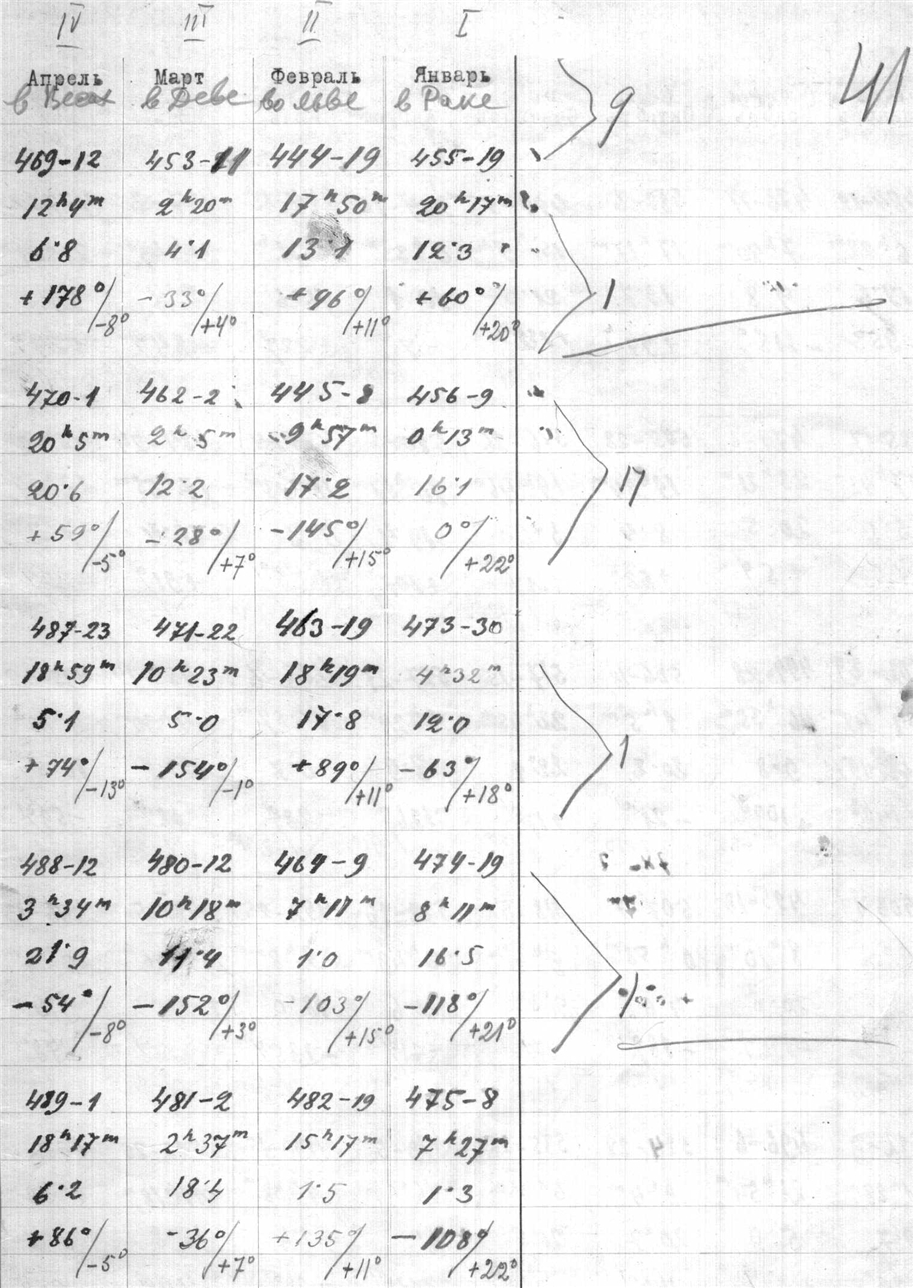 IV III II I
Апрель Март Февраль Январь
в Весах в Деве во Льве в Раке
9
41
469-12 453-11 444-19 455-19
12ʰ4ᵐ 2ʰ20ᵐ 17ʰ50ᵐ 20ʰ17ᵐ
6·8 4·1 13·1 12·3
+178°/-8° -33°/+4° +96°/+11° +60°/+20°
1
470-1 462-2 445-8 456-9
20ʰ5ᵐ 2ʰ5ᵐ 9ʰ57ᵐ 0ʰ13ᵐ
17
20·6 12·2 17·2 16·1
+59°/-5° -28°/+7° -145°/+15° 0°/+22°
487-23 471-22 463-19 473-30
18ʰ59ᵐ 10ʰ23ᵐ 18ʰ19ᵐ 4ʰ32ᵐ
5·1 5·0 17·8 12·0
+74°/-13° -154°/-1° +89°/+11° -63°/+18°
1
488-12 480-12 464-9 474-19
3ʰ34ᵐ 10ʰ18ᵐ 7ʰ11ᵐ 8ʰ11ᵐ
21·9 11·4 1·0 16·5
-54°/-8° -152°/+3° -103°/+15° -118°/+21°
489-1 481-2 482-19 475-8
18ʰ17ᵐ 2ʰ37ᵐ 15ʰ17ᵐ 7ʰ27ᵐ
6·2 18·4 1·5 1·3
+86°/-5° -36°/+7° +135°/+11° -108°/+22°